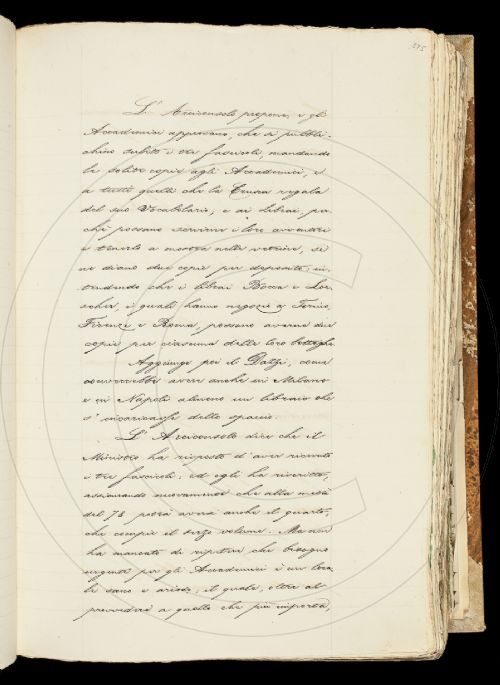 375
L'Arciconsolo propone, e gli
Accademici approvano, che si pubbli-
chino subito i tre fascicoli, mandando
le solite copie agli Accademici, e
a tutti quelli che la Crusca regala
del suo Vocabolario; e ai librai, per-
chè possano servirne i loro avventori
e tenerlo a mostra nelle vetrine, se
ne diano due copie per deposito; in-
tendendo che i librai Bocca e Loe-
scher, i quali hanno negozio a Torino,
Firenze e Roma, possano averne due
copie per ciascuna delle loro botteghe.
Aggiunge poi il Dalzi, come
occorrerebbe avere anche in Milano
e in Napoli almeno un libraio che
s'incaricasse dello spaccio.
L'Arciconsolo dice che il
Ministro ha risposto d'aver ricevuto
i tre fascicoli; ed egli ha riscritto,
assicurando nuovamente che alla metà
del 78 potrà avere anche il quarto,
che compie il terzo volume. Ma non
ha mancato di ripetere che bisogno
urgente per gli Accademici è un loca-
le sano e arioso; il quale, oltre al
provvedere a quello che più importa,